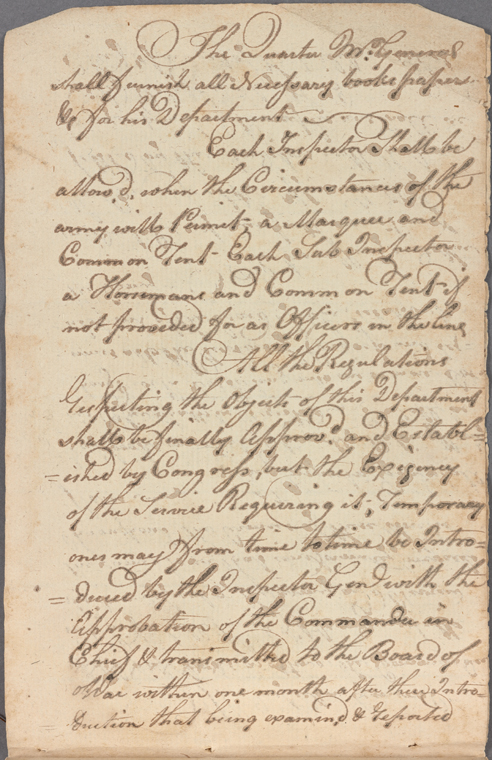 The Quarter Mr. General
shall furnish all Necessary books papers
&c for his Department
Each Inspector Shall be
allow'd, when the Circumstances of the
army will Permit, a Marquee and
Common Tent - Each Sub Inspector
a Horsemans and Common Tent - if
not provided for as Officers in the line
All the Regulations
Respecting the Objects of this Department
shall be finally Approv'd and Establ=
=ished by Congress, but the Exigency
of the Service Requiring it, Temporary
ones may from time to time be Intro=
=duced by the Inspector Genl with the
Approbation of the Commander in
Chief & transmitted to the Board of
War within one month after their Intro=
duction that being examin'd & Reported